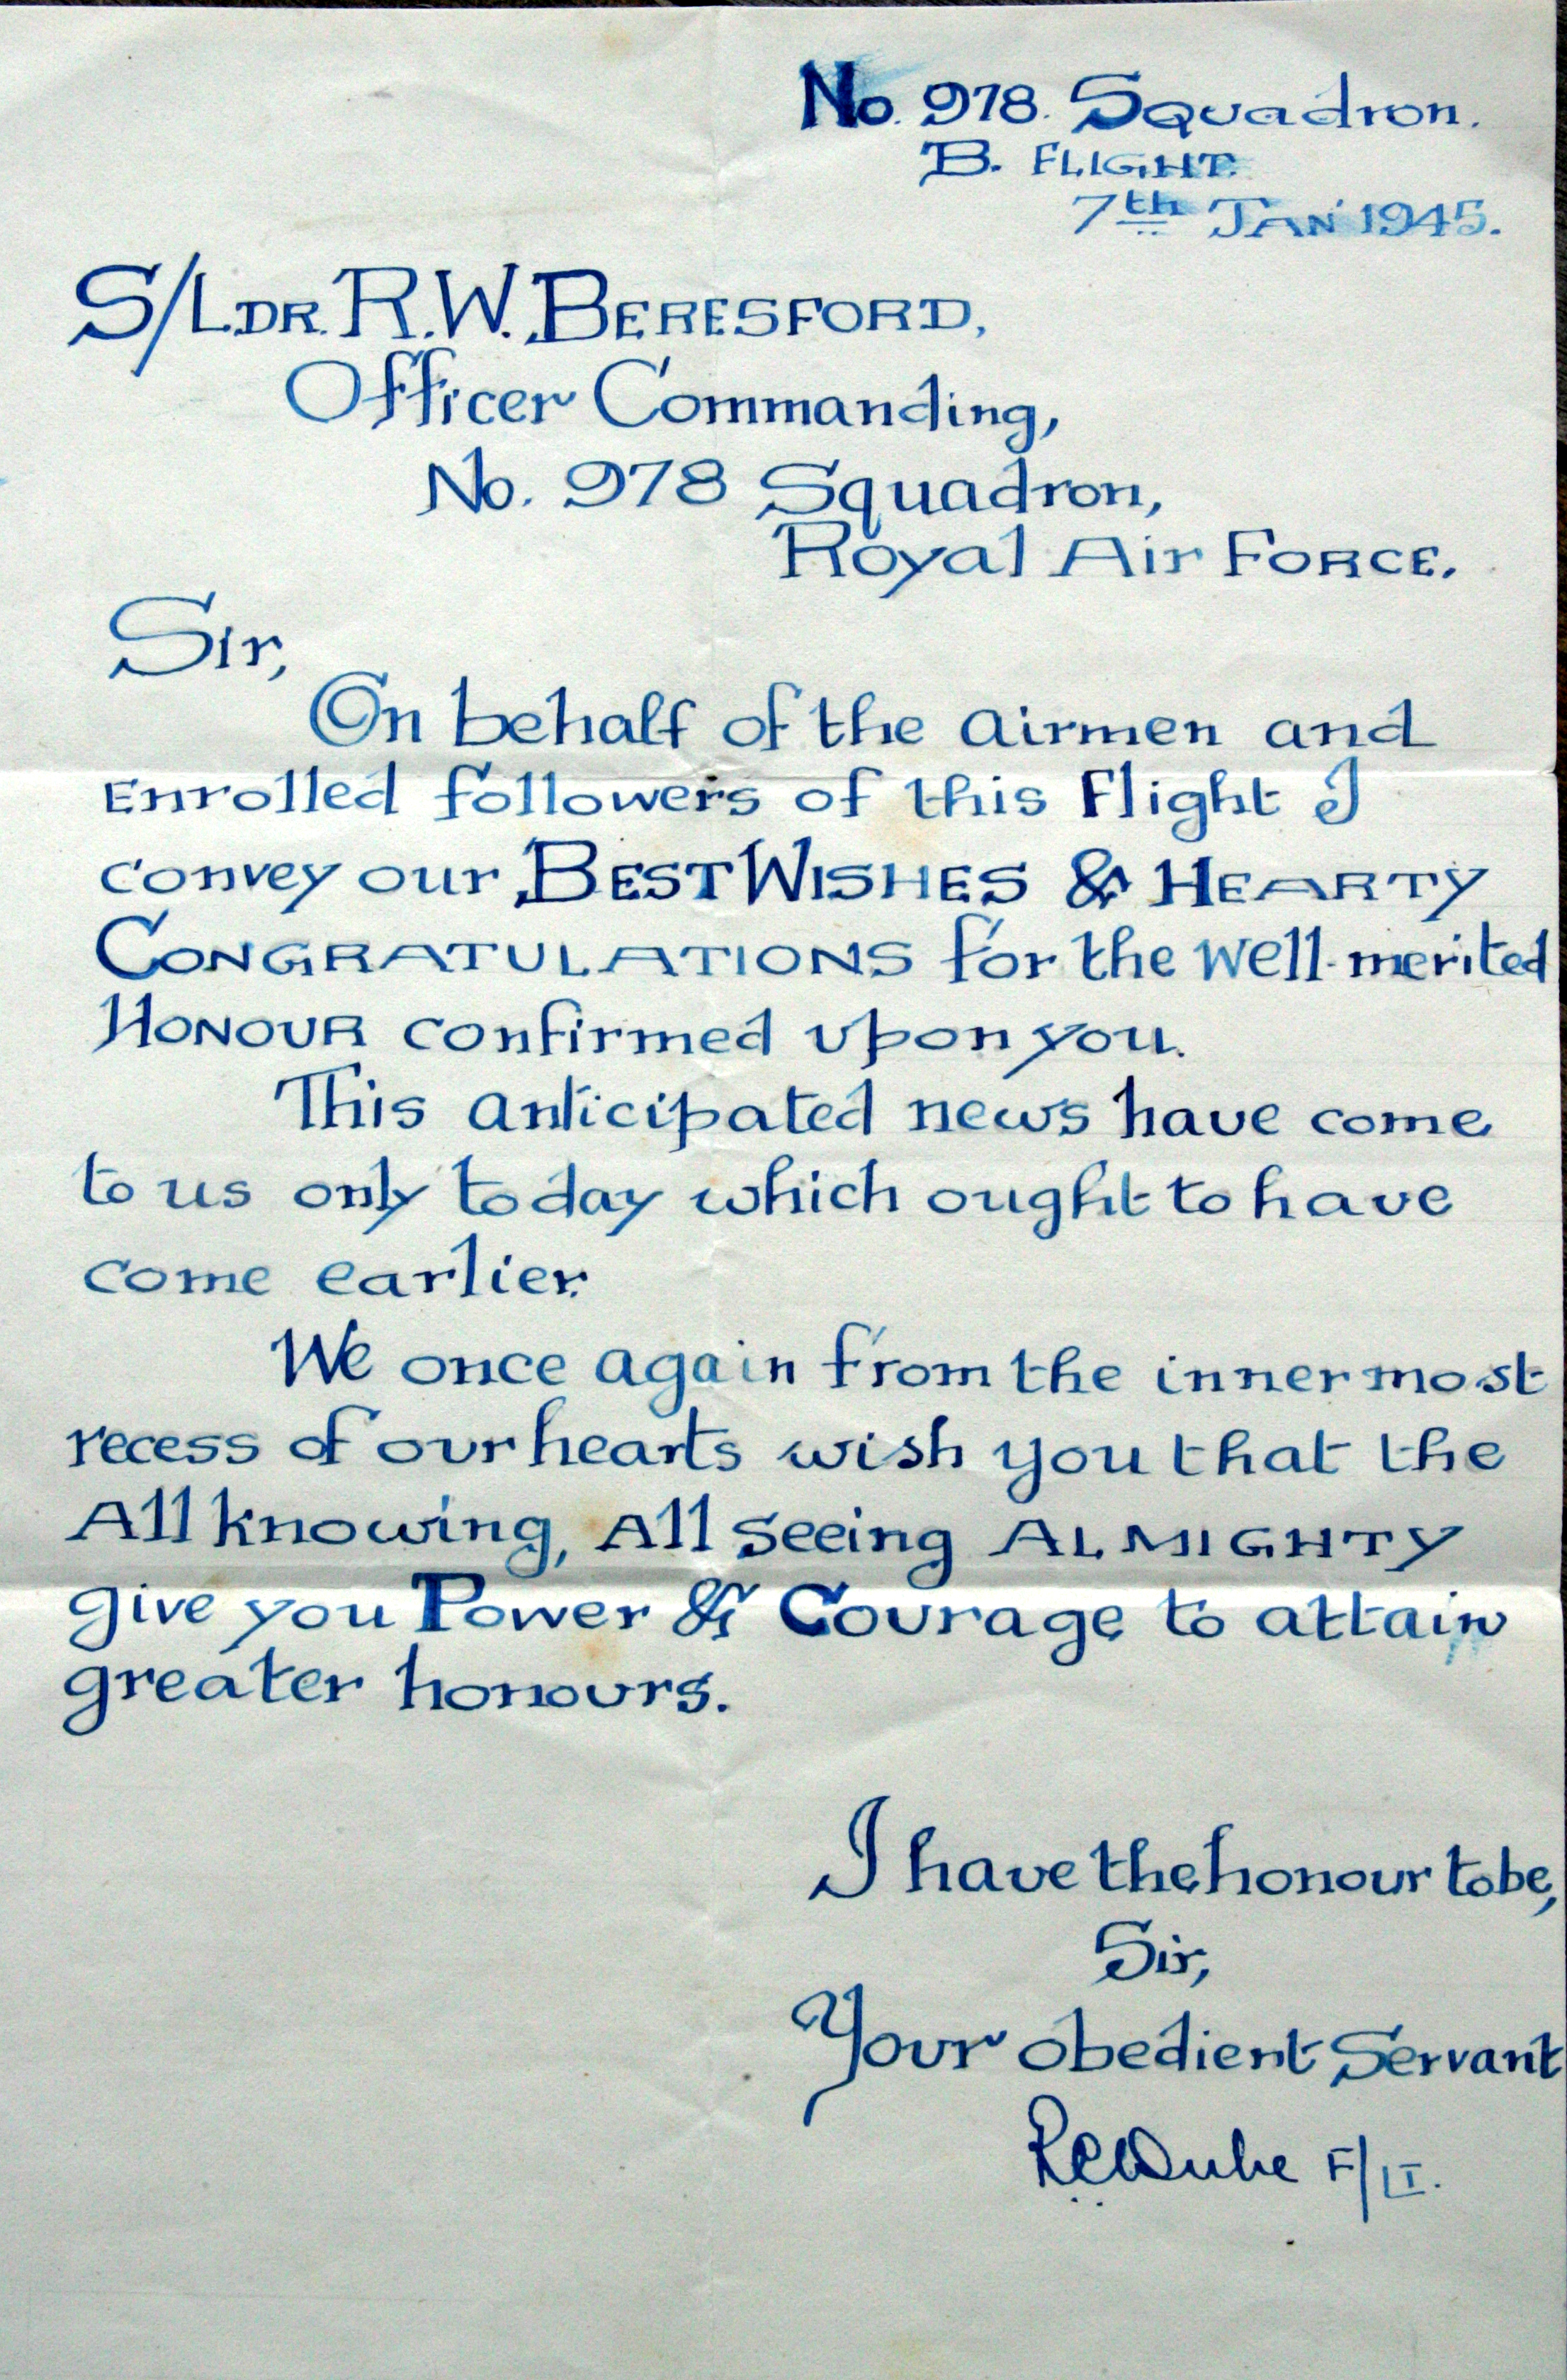 No. 978. Squadron.
B. FLIGHT.
7th JAN 1945.
S/LDR. R.W. BERESFORD,
Officer Commanding,
No. 978 Squadron,
Royal Air FORCE.
Sir,
On behalf of the airmen and
Enrolled followers of this Flight I
convey our BEST WISHES & HEARTY
CONGRATULATIONS for the well-merited
HONOUR confirmed upon you.
This anticipated news have come
to us only today which ought to have
come earlier.
We once again from the innermost
recess of our hearts wish you that the
All knowing, All seeing ALMIGHTY
give you Power & Courage to attain
greater honours.
I have the honour to be,
Sir,
Your obedient Servant
RCDube F/LT.